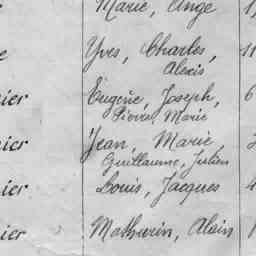 Marie, Ange 1
e Yves, Charles, 11
Alexis
ier Eugène, Joseph, 6
Pierre, Marie
ier Jean, Marie,
Guillaume, Julien
ier Louis, Jacques 4
ier Mathurin, Alain